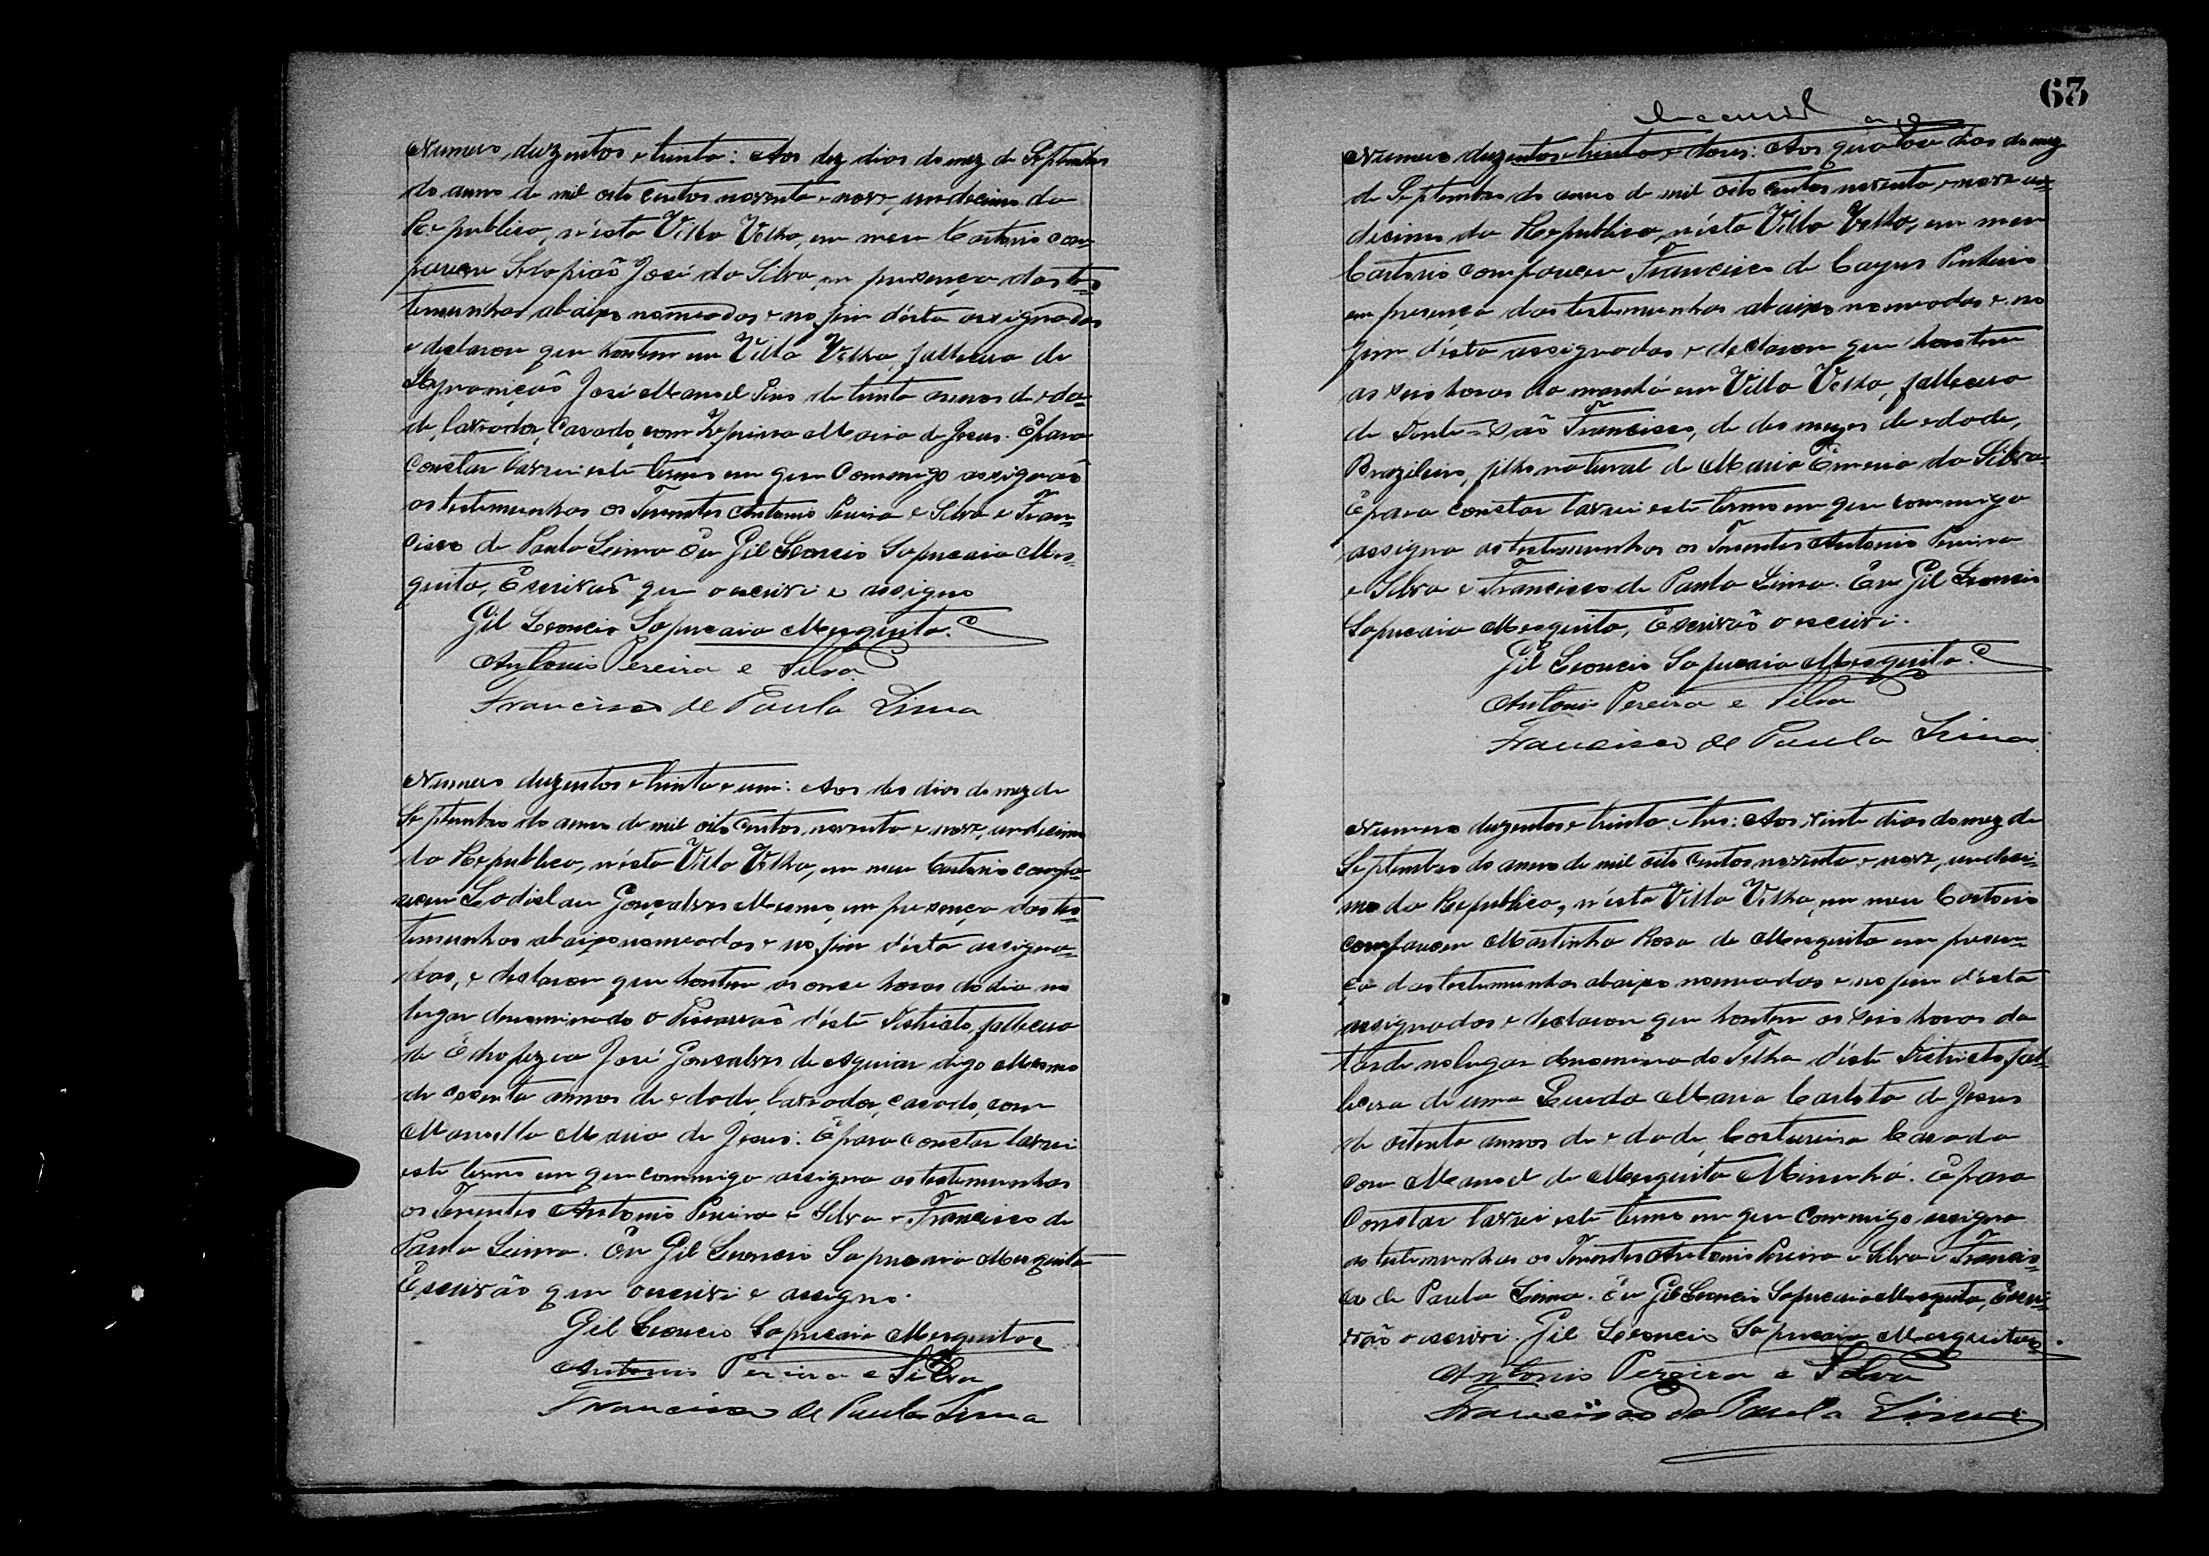 Numero duzentos e trinta: Aos dez dias do mez de Septembro
do anno de mil oito centos noventa e nove, undecimo da
Republica, n'ésta Villa Velha, em meu Cartorio com
pareceu José da Silva, em presença das tes=
temunhas abaixo nomeadas e no fim d'ésta assignadas
e declarou que hontem em Villa Velha, falleceu de
José Manoel Pires de trinta annos de eda=
de, lavrador, casado com Zeferina Maria de Jesus. E para
constar lavrei este termo em que commigo assignaõ
as testemunhas os Tenentes Antonio Pereira e Silva e Fran=
cisco de Paula Lima Eu Gil Leoncio Sapucaia Mes=
quita, Escrivaõ que o escrivi e assigno
Gil Leoncio Sapucaia Mesquita.
Antonio Pereira e Silva
Francisco de Paula Lima
Numero duzentos e trinta e um: Aos des dias do mez de
Septembro do anno de mil oito centos noventa e nove, undecimo
da Republica, n'ésta Villa Velha, em meu Cartorio compa=
receu Ladislau Gonçalves em presença das tes=
temunhas abaixo nomeadas e no fim d'ésta assigna=
das, e declarou que hontem as onse horas do dia no
lugar denominado o d'éste Districto, falleceu
de José Gonsalves de Aguiar digo
de cesenta annos de edade, lavrador, casado, com
Manoella Maria de Jesus: E para constar lavrei
este termo em que commigo assigna as testemunhas
os Tenentes Antonio Pereira e Silva e Francisco de
Paula Lima. Eu Gil Leoncio Sapucaia Mesquita
Escrivão que o escrivi e assigno.
Gil Leoncio Sapucaia Mesquita
Antonio Pereira e Silva
Francisco de Paula Lima
63
Numero duzentos e trinta e dous: Aos quatorze dias do mez
de Septembro do anno de mil oito centos noventa e nove un=
decimo da Republica, n'ésta Villa Velha, em meu
Cartorio compareceu Francisco de Pinheiro
em presença das testemunhas abaixo nomeadas e no
fim d'ésta assignadas e declarou que hontem
as seis horas da manhã em Villa Velha, falleceu
de Francisco, de des mezes de edade,
Brazileiro, filho natural de Maria da Silva
E para constar lavrei este termo em que commigo
assigna as testemunhas os Tenentes Antonio Pereira
e Silva e Francisco de Paula Lima. Eu Gil Leoncio
Sapucaia Mesquita, Escrivão o escrivi.
Gil Leoncio Sapucaia Mesquita.
Antonio Pereira e Silva
Francisco de Paula Lima
Numero duzentos e trinta e tres: Aos vinte dias do mez de
Septembro do anno de mil oito centos noventa e nove, undeci=
mo da Republica, n'ésta Villa Velha, em meu Cartorio
compareceu Martinho Rosa de Mesquita em presen=
ça das testemunhas abaixo nomeadas e no fim d'ésta
assignadas e declarou que hontem as seis horas da
tarde no lugar denominado Telha d'éste Districto, fal=
leceu de uma Maria Carlota de Jesus
de oitenta annos de edade, Costureira Casada
com Manoel de Mesquita E para
Constar lavrei este termo em que Commigo assigna
as testemunhas os Tenentes Antonio Pereira e Silva e Francis=
co de Paula Lima. Eu Gil Leoncio Sapucaia Mesquita, Escri=
vão o escrivi. Gil Leoncio Sapucaia Mesquita.
Antonio Pereira e Silva
Francisco de Paula Lima